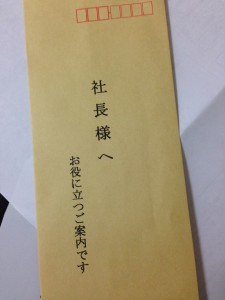 社長様へ
お役に立つご案内です